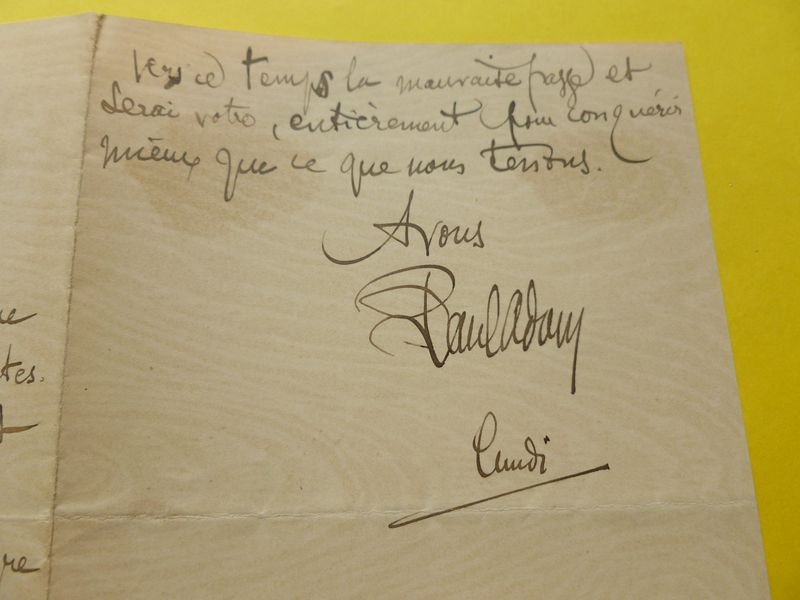 vers ce temps la mauvaise passe et
serai votre, entièrement pour conquérir
mieux que ce que nous tenons.
A vous
Paul Adam
Lundi
tes.